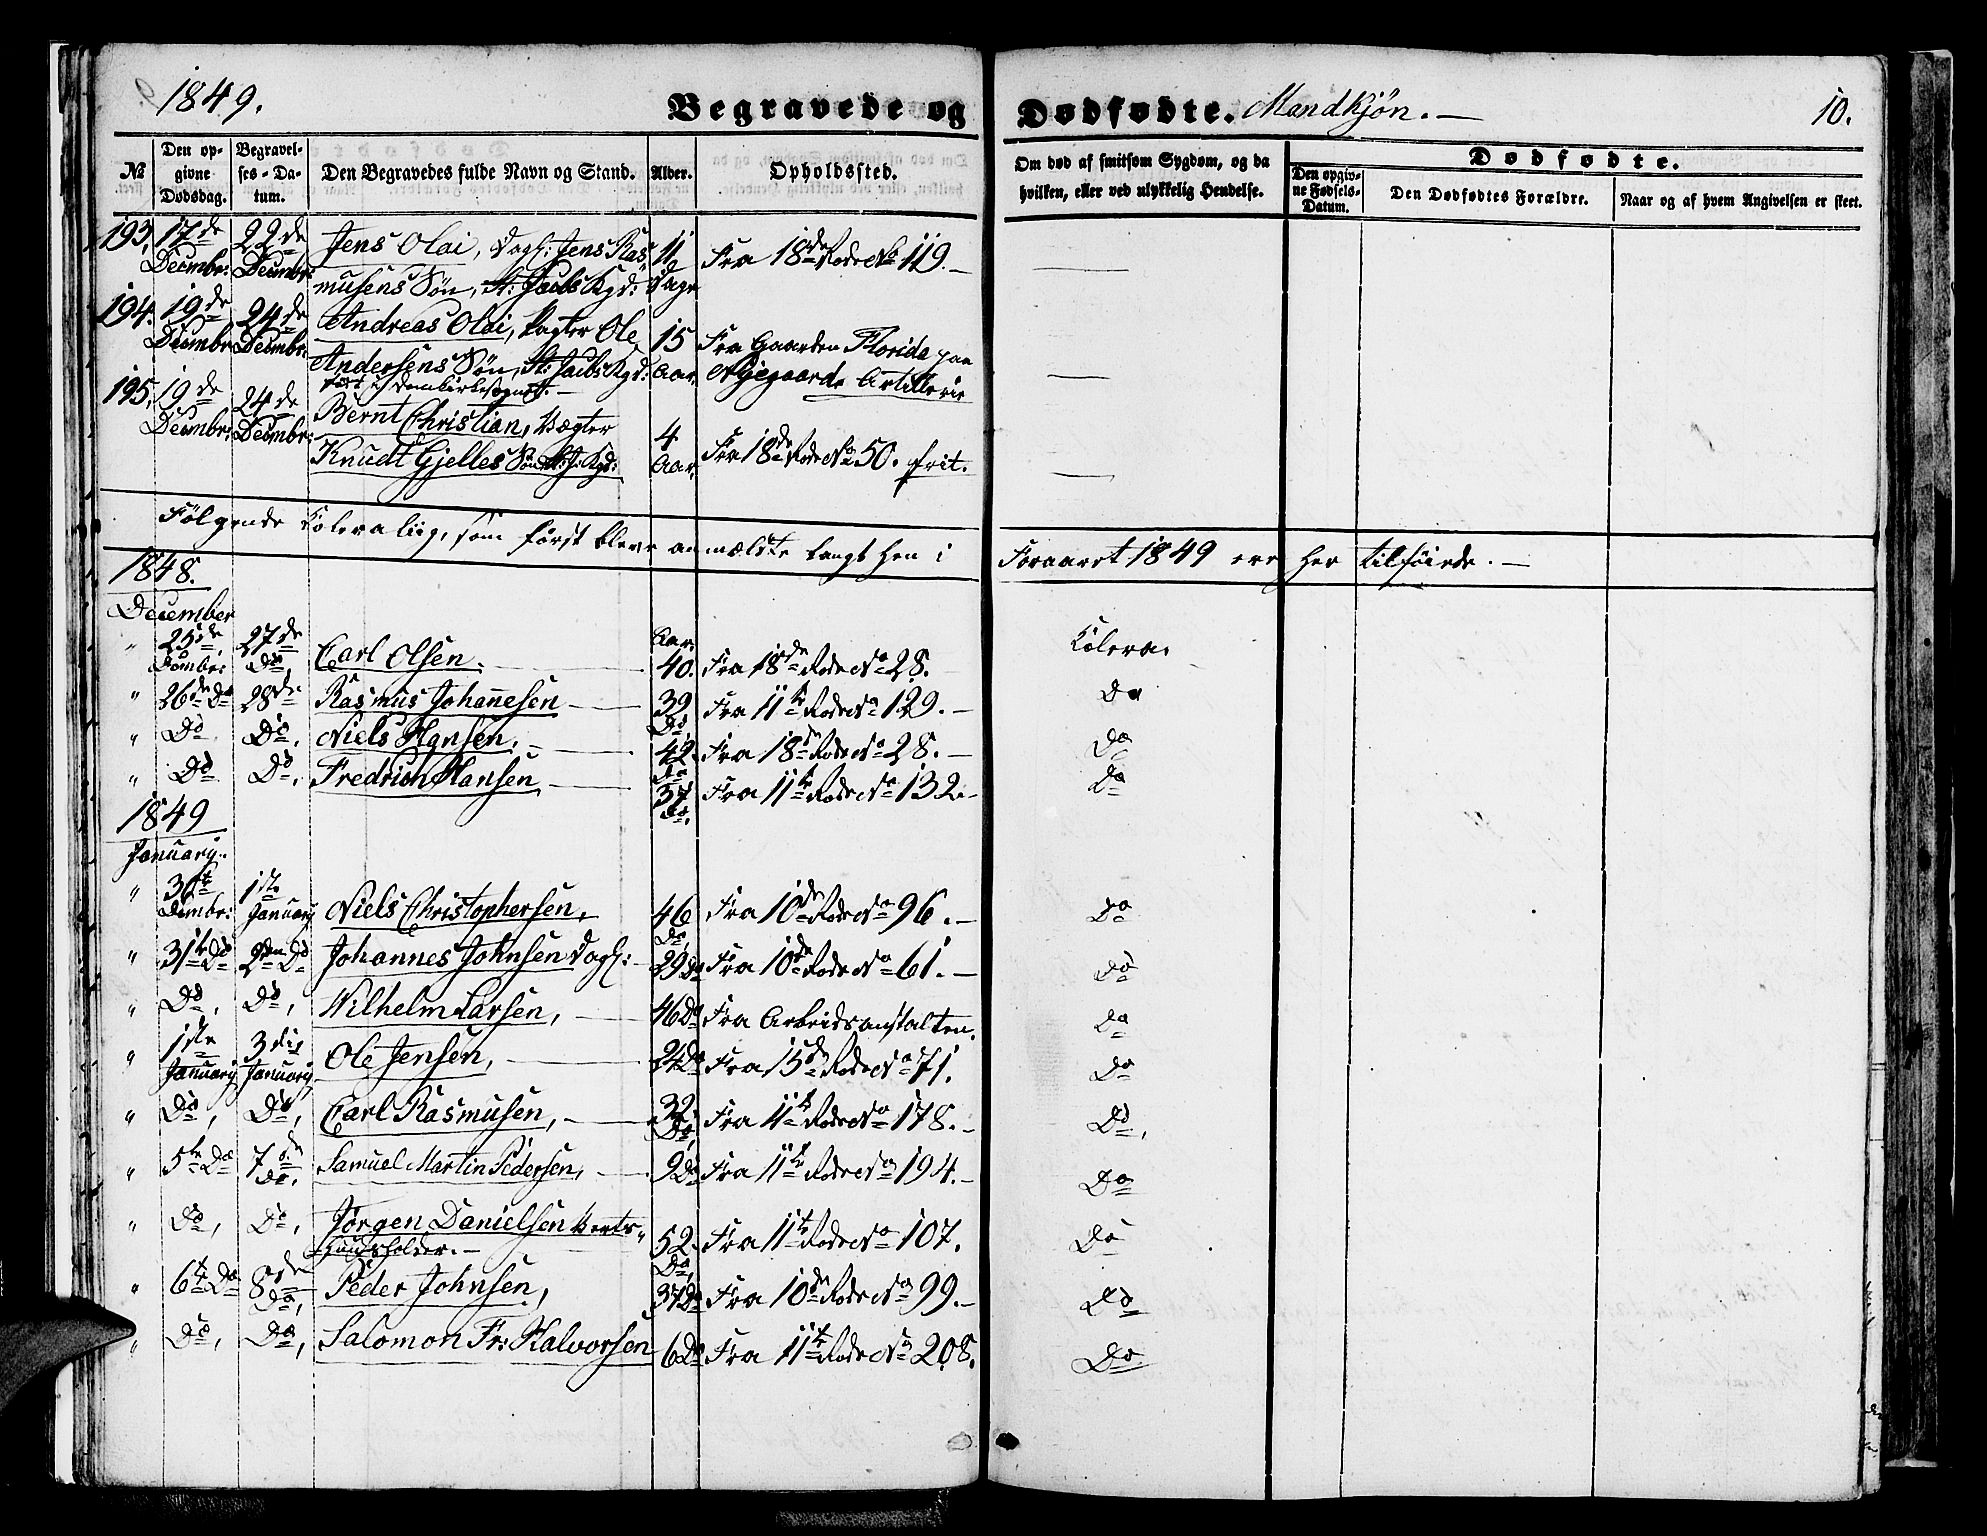 1849.
Begravede og Dødfødte. Mandkjøn.—
10.
№
Den opgivne Dødsdag.
Begravelses-Datum.
Den Begravedes fulde Navn og Stand.
Alder.
Opholdssted.
Om død af smitsom Sygdom, og da hvilken, eller ved ulykkelig Hendelse.
Dødfødte.
Den opgivne Fødsels-Datum.
Den Dødfødtes Forældre.
Naar og af hvem Angivelsen er skeet.
193. 17de 22de Jens Olai, Dagl: Jens Ras- 11 Fra 18de Rode No 119.—
Decmbr: Decmbr: musens Søn, St: Jacobs Kgd: Dage
194. 19de 24de Andreas Olai, Pagter Ole 15 Fra Gaarden Florida paa
Decmbr: Decmbr: Andersens Søn, St: Jacobs Kgd: Aar. Nygaards Artillerie
Domkirkesognet.—
195. 19de 24de Bernt Christian, Vægter 4
Decmbr: Decmbr: Knudt Gjelles Søn St: J: Kgd: Aar. Fra 18de Rode No 50. frit.
Følgende Koleraliig, som først bleve anmældte langt hen i Foraaret 1849 ere her tilføiede.—
1848.
December
" 25de 27de Aar.
Decmbr: Do, Carl Olsen.— 40. Fra 18de Rode No 28. Kolera.
" 26de Do 28de Rasmus Johannesen— 39 Do Fra 11te Rode No 129.— Do
" Do Do, Niels Hansen.— 42. Do Fra 18de Rode No 28.— Do
" Do Do, Fredrich Hansen— 37 Do, Fra 11te Rode No 132.— Do
1849
January.
" 30te 1ste
Decmbr: January Niels Christophersen, 46 Do, Fra 10de Rode No 96.— Do
" 31te Do 2den Do Johannes Johnsen Dagl:— 29 Do Fra 10de Rode No 61.— Do
" Do, Do, Wilhelm Larsen,— 46 Do Fra Arbeidsanstalten. Do
" 1ste 3die
January January Ole Jensen,— 24 Do Fra 15de Rode No 71. Do
" Do, Do, Carl Rasmusen,— 32 Do, Fra 11te Rode No 178.— Do,
" 5te Do 7de Do, Samuel Martin Pedersen,— 9 Do Fra 11te Rode No 194.— Do
" Do, Do, Jørgen Danielsen Verts-
huusholder.— 52. Do, Fra 11te Rode No 107. Do
" 6te Do 8de Do, Peder Johnsen, 37 Do Fra 10de Rode No 99.— Do
" Do, Do, Salomon Fr: Halvorsen 6 Do Fra 11te Rode No 208. Do.